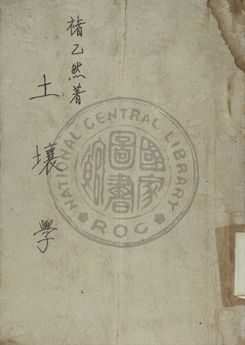 褚乙然著
土壤學
NATIONAL CENTRAL LIBRARY
國家圖書館
ROC